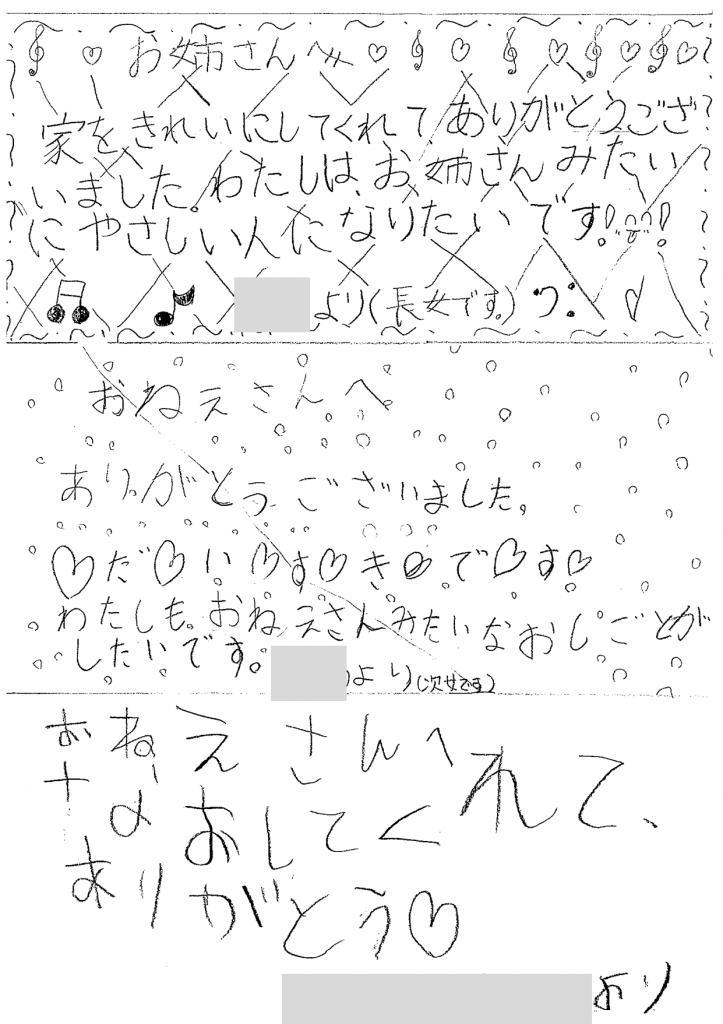 お姉さんへ
家をきれいにしてくれてありがとうござ
いました。わたしは、お姉さんみたい
にやさしい人になりたいです!!
より(長女です。)
おねえさんへ
ありがとうございました。
♡だ♡い♡す♡き♡で♡す♡
わたしも。おねえさんみたいなおしごとが
したいです。より(次女です)
おねえさんへ
なおしてくれて、
ありがとう♡
より